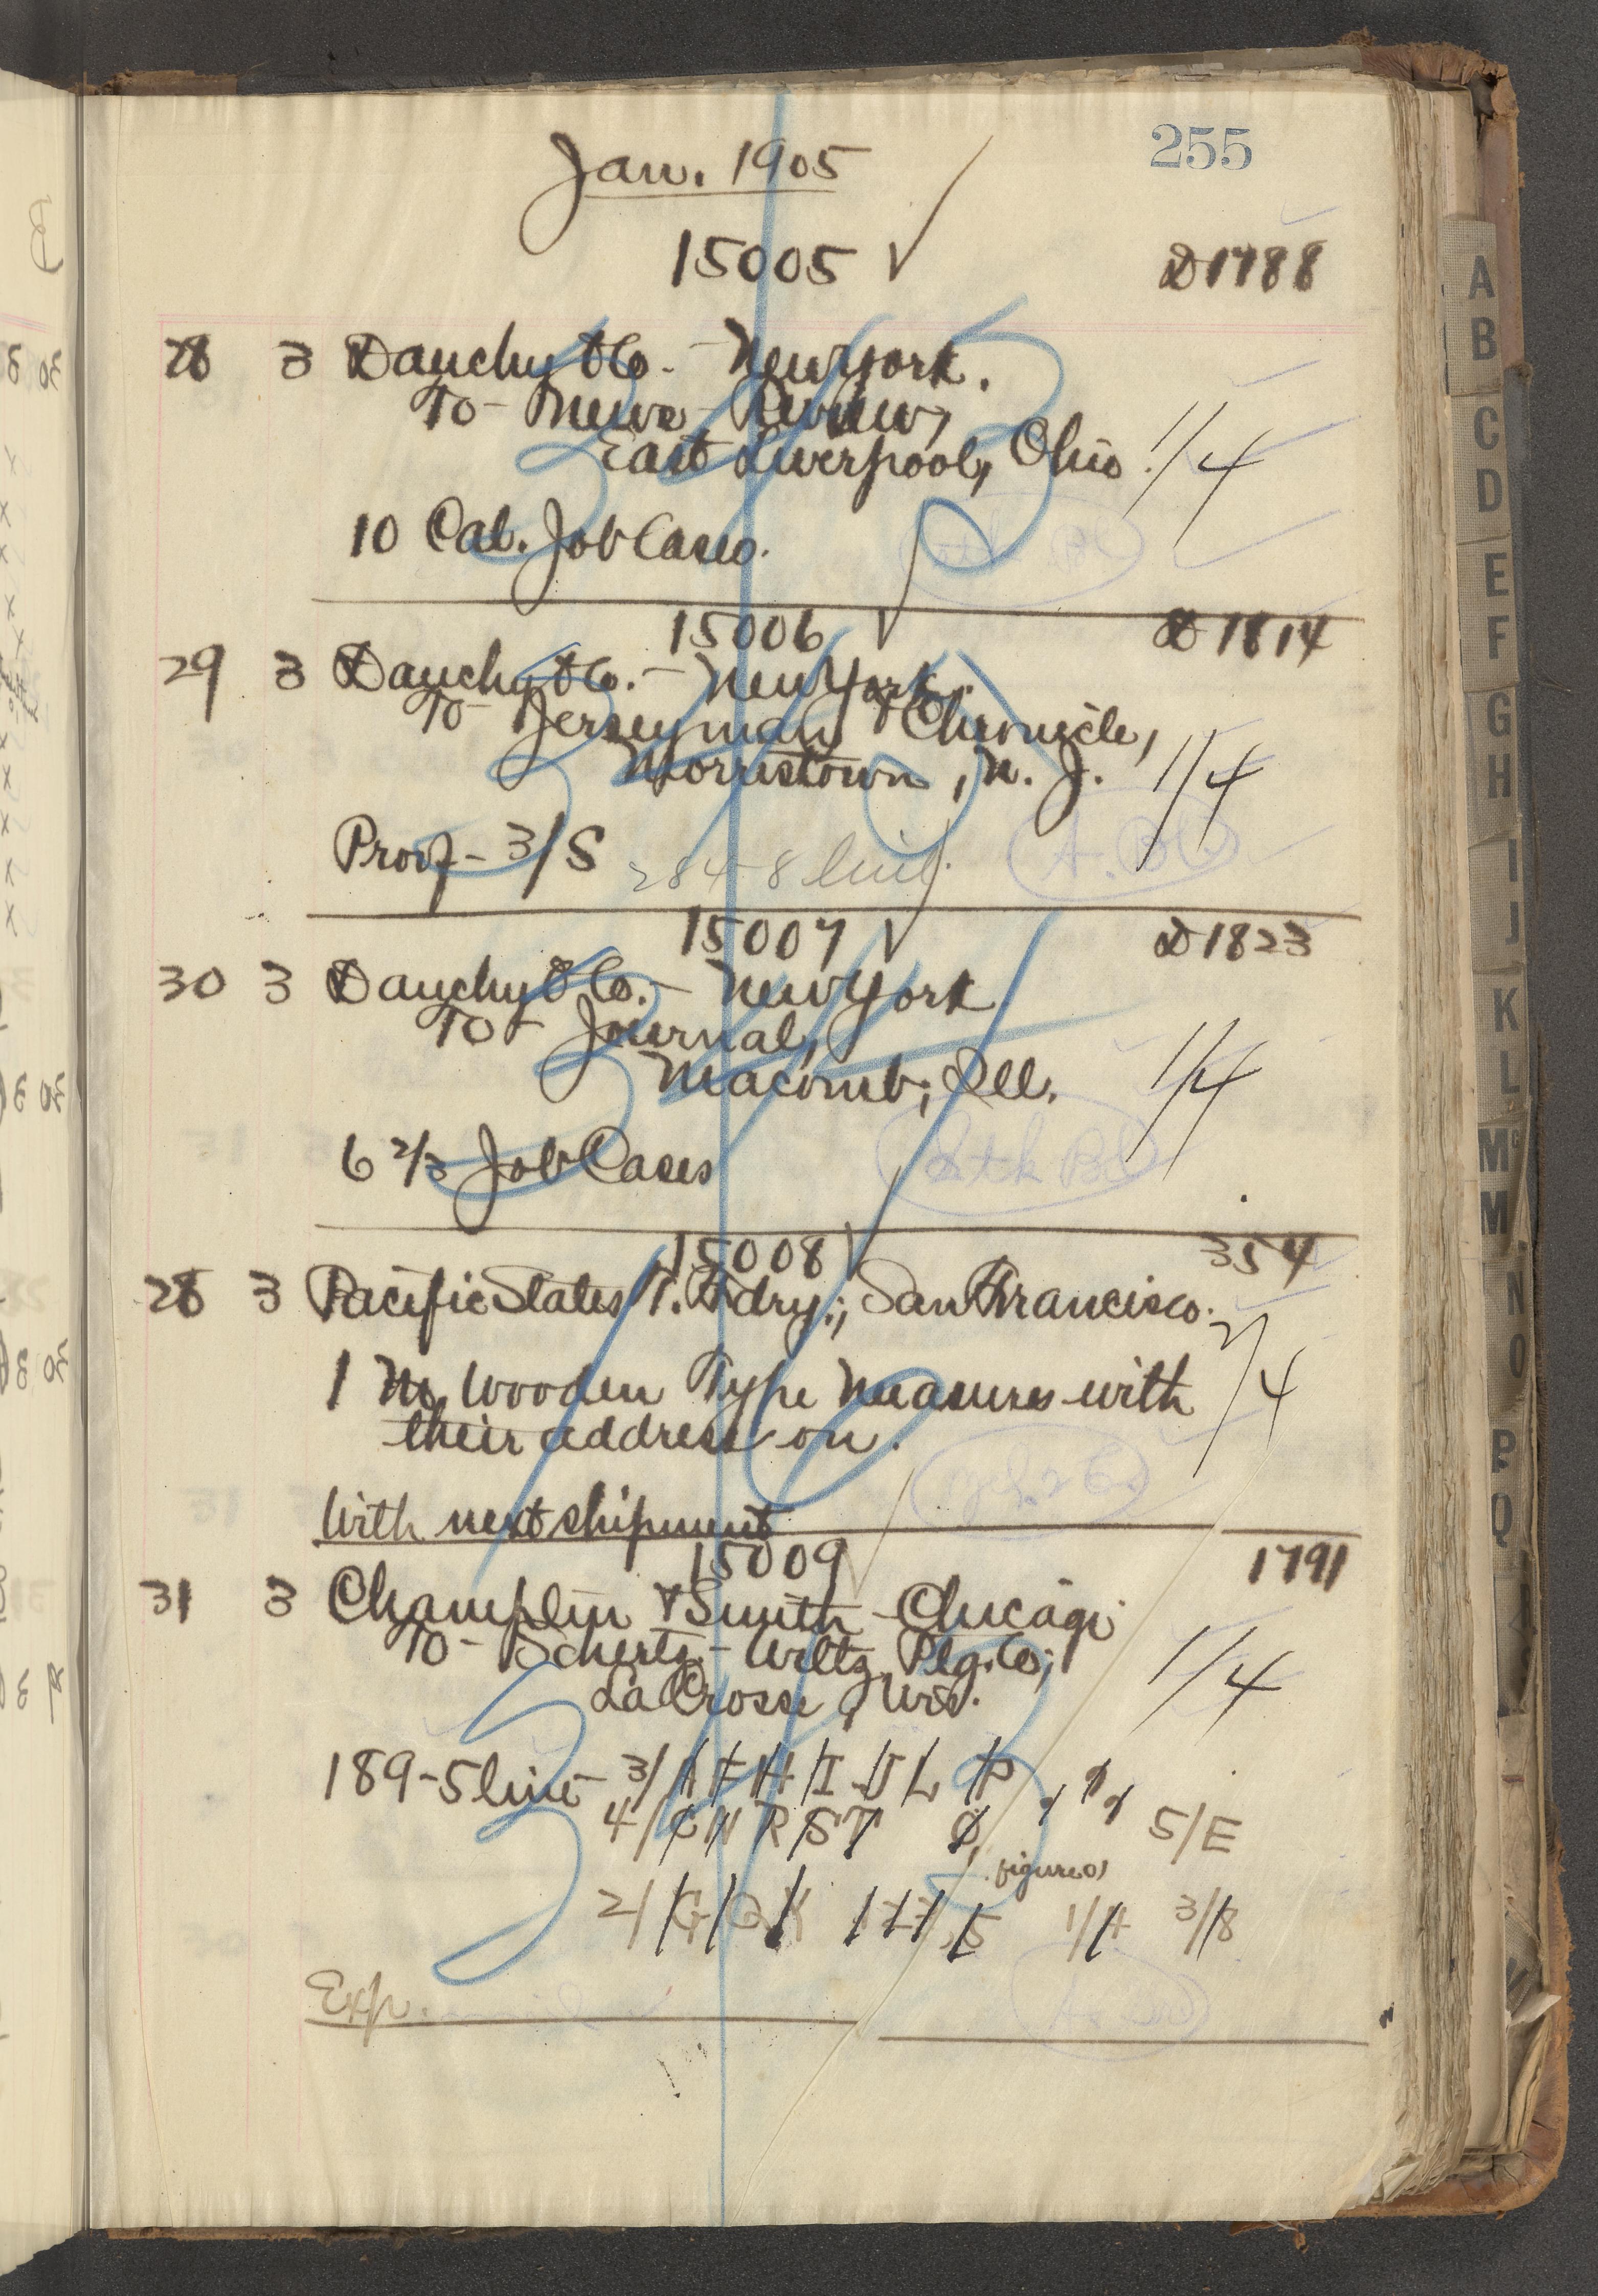 255
Jan. 1905
15005 √ D1788
28 3 Dauchy & Co. - New York.
To - News - Review,
East Liverpool, Ohio. 1/4
10 Cal. Job Cases.
15006 √ D1814
29 3 Dauchy & Co. - New York.
To - Jerseyman & Chronicle,
Morristown, N. J. 1/4
Proof - 3/S 284 - 8 line.
15007 √ D1823
30 3 Dauchy & Co. - New York
To - Journal,
Macomb; Ill. 1/4
6 2/3 Job Cases
Stk
15008 √ 354
28 3 Pacific States T. Fdry.; San Francisco.
2/4
1 M. Wooden Type Measures with
their address on.
With next shipment
15009 √ 1791
31 3 Champlin & Smith - Chicago
To - Wiltz Ptg. Co;
La Crosse, Wis. 1/4
189 - 5 line - 3/ A F H I J L P
4/ C N R S T 5/E
figures
2/ G Q K 1/H 3/8
Exp.
A
B
C
D
E
F
G
H
I
J
K
L
Mc
M
N
O
P
Q